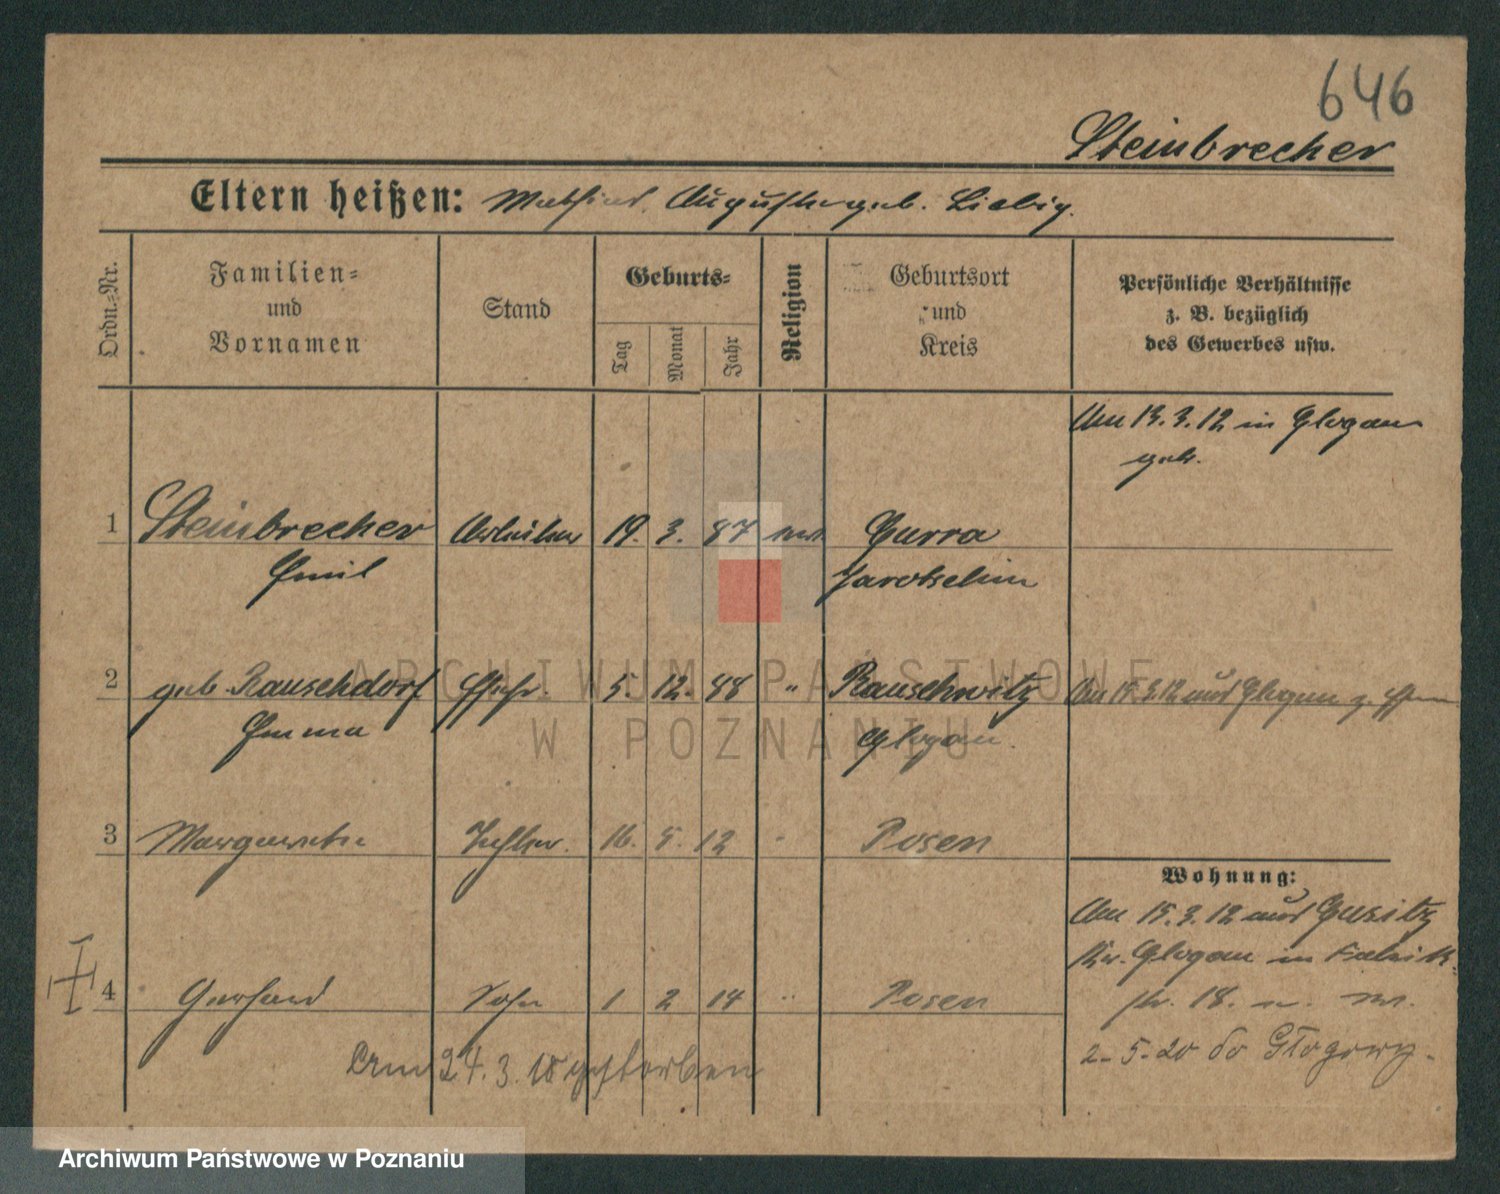 646
Steinbrecher
Eltern heißen: Mathias. Auguste geb. Liebig.
Ordn.-Nr.
Familien-
und
Vornamen
Stand
Geburts-
Tag
Monat
Jahr
Religion
Geburtsort
und
Kreis
Persönliche Verhältnisse
z. B. bezüglich
des Gewerbes usw.
Am 13.3.12 in Glogau
geh.
1 Steinbrecher Arbeiter 19. 3. 87
Emil
Gurra
Jarotschin
2 geb. Rauschdorf Ehefr. 5. 12. 88 " Rauschwitz
Emma
Glogau
Am 15.3.12 aus Glogau z.
3 Margarethe Tochter. 16. 5. 12 " Posen
Wohnung:
Am 15.3.12 aus Gusitz
Kr. Glogau in Fabrik
str. 18.
2-5-20 do Głogowy.
4 Gerhard Sohn 1 2 14 " Posen
Am 24.3.18 gestorben
ARCHIWUM PAŃSTWOWE
W POZNANIU
Archiwum Państwowe w Poznaniu